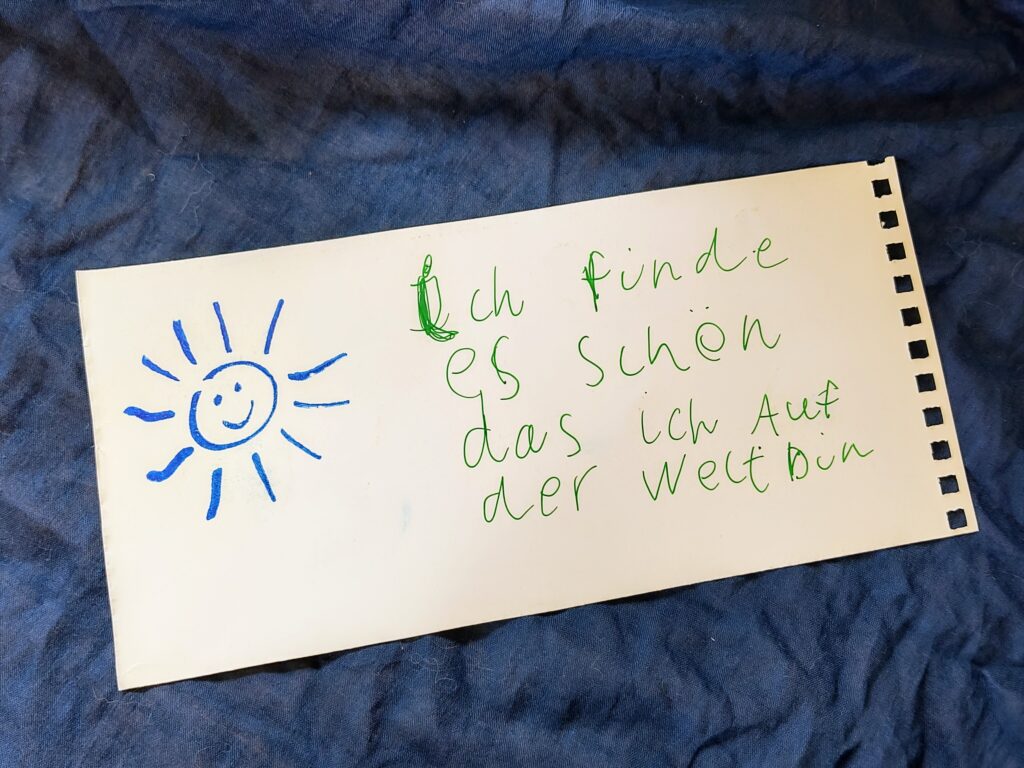 Ich finde
es schön
das ich Auf
der Welt bin